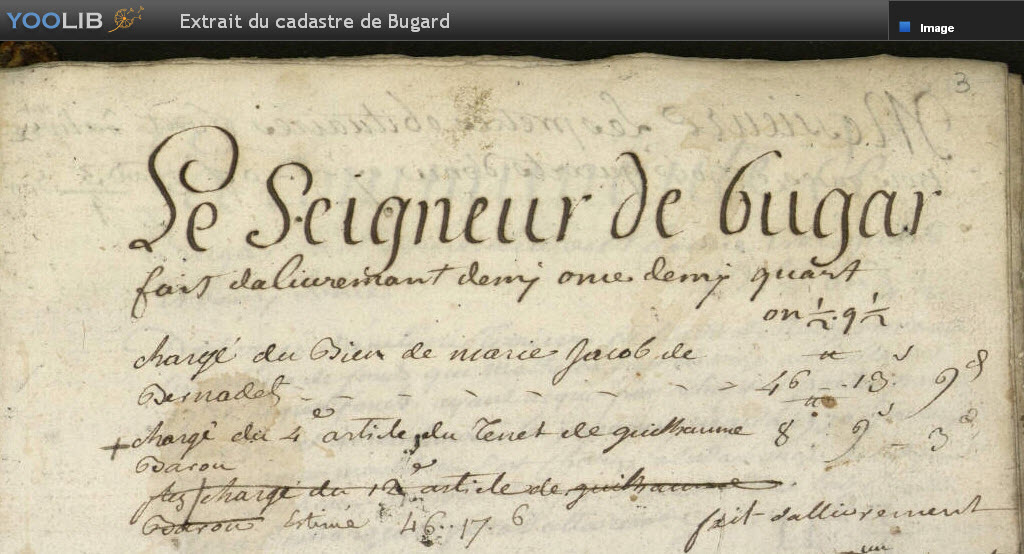 YOOLIB Extrait du cadastre de Bugard Image
3
Le Seigneur de bugar
fait dalivremant demj once demj quart
on 1/2 q 1/2
chargé du Bien de marie Jacob de
Bernadet 46 ₶ 13 s 9 d
+ chargé du 4e article du Tenet de guilhaume 8 ₶ 9 s 3 d
Barou
chargé du 12e article de guilhaume
Barou Estimé 46 . 17 . 6
fait dallivrement